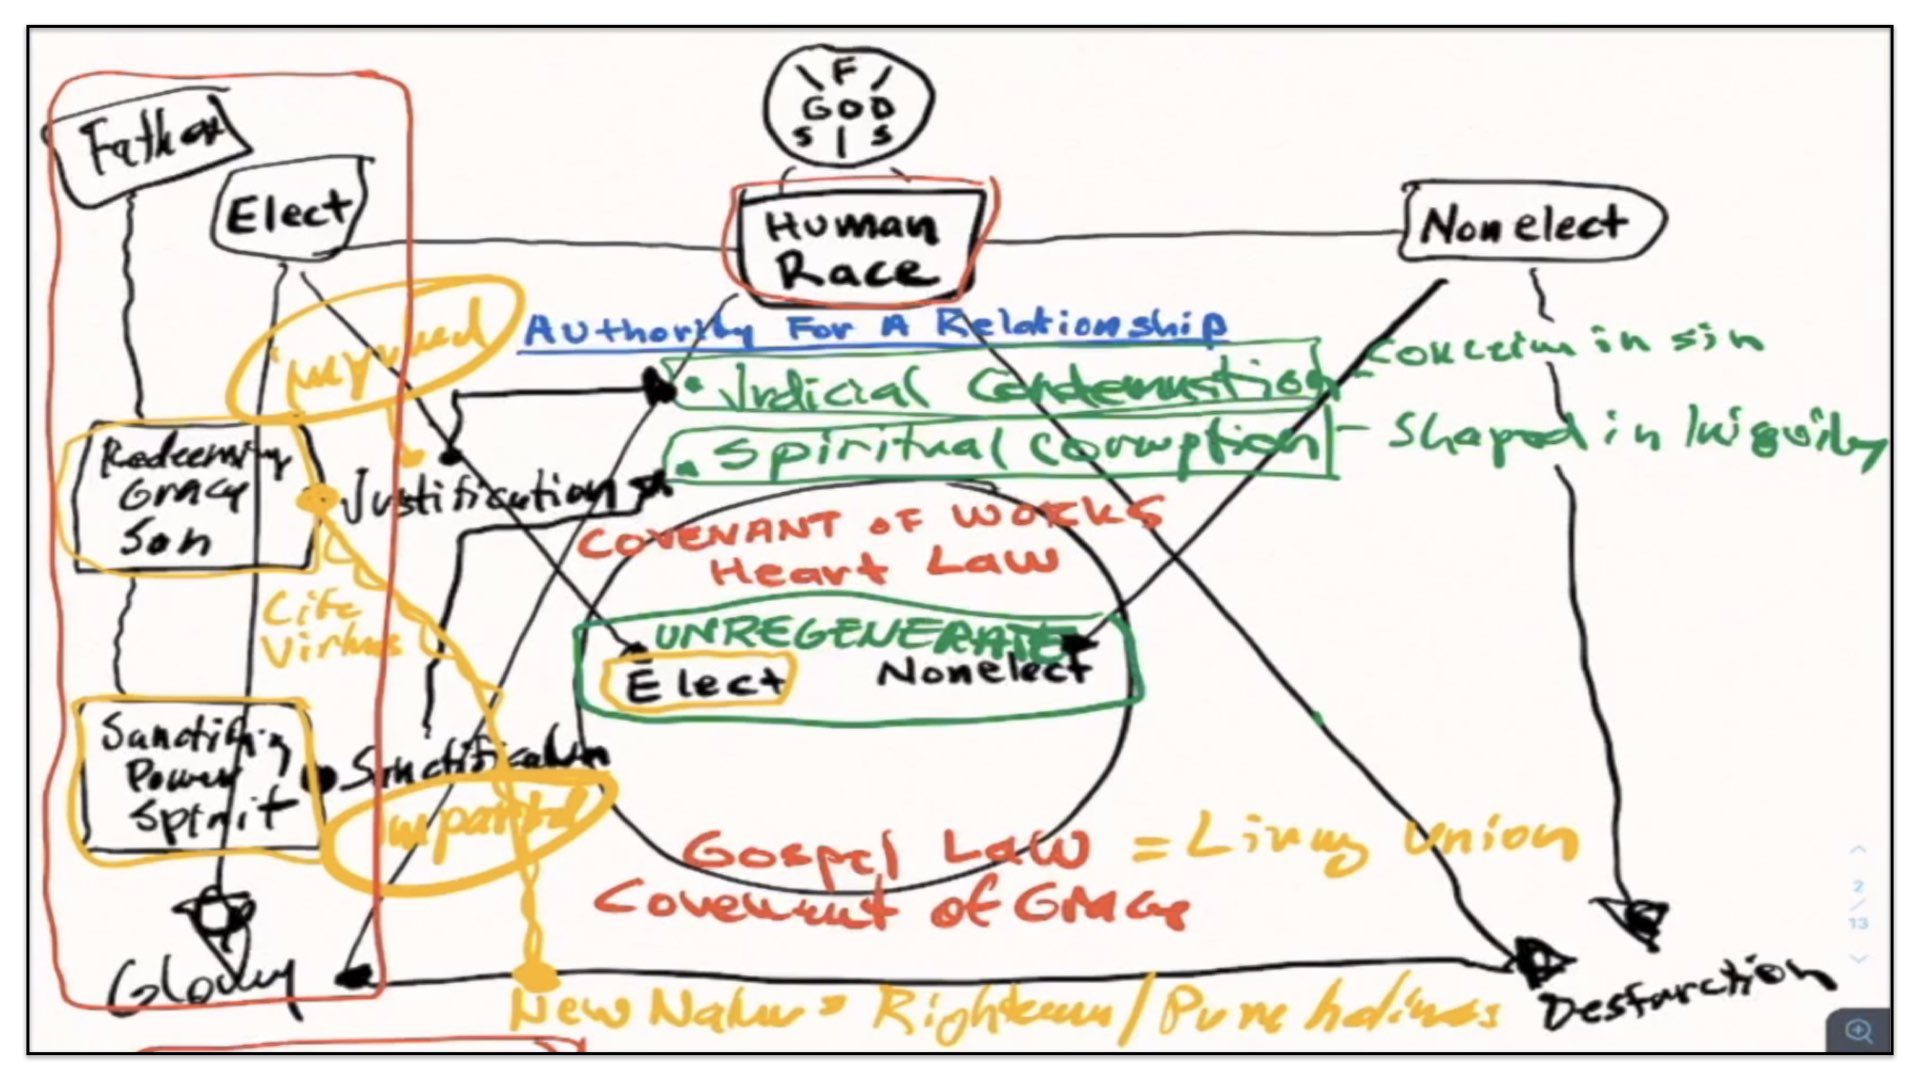 F
GOD
S I S
Father
Elect
Human
Race
Nonelect
Authority For A Relationship
Judicial Condemnation
in sin
Spiritual Corruption - Shaped in
Redeeming
Grace
Son
Justification
COVENANT OF WORKS
Heart Law
Life
Virtues
UNREGENERATE
Elect Nonelect
Sanctifin
Power
Spirit
Sanctification
imparted
Gospel Law = Living Union
Covenant of Grace
Glory
New Nature = / Pure holiness
2
/
13